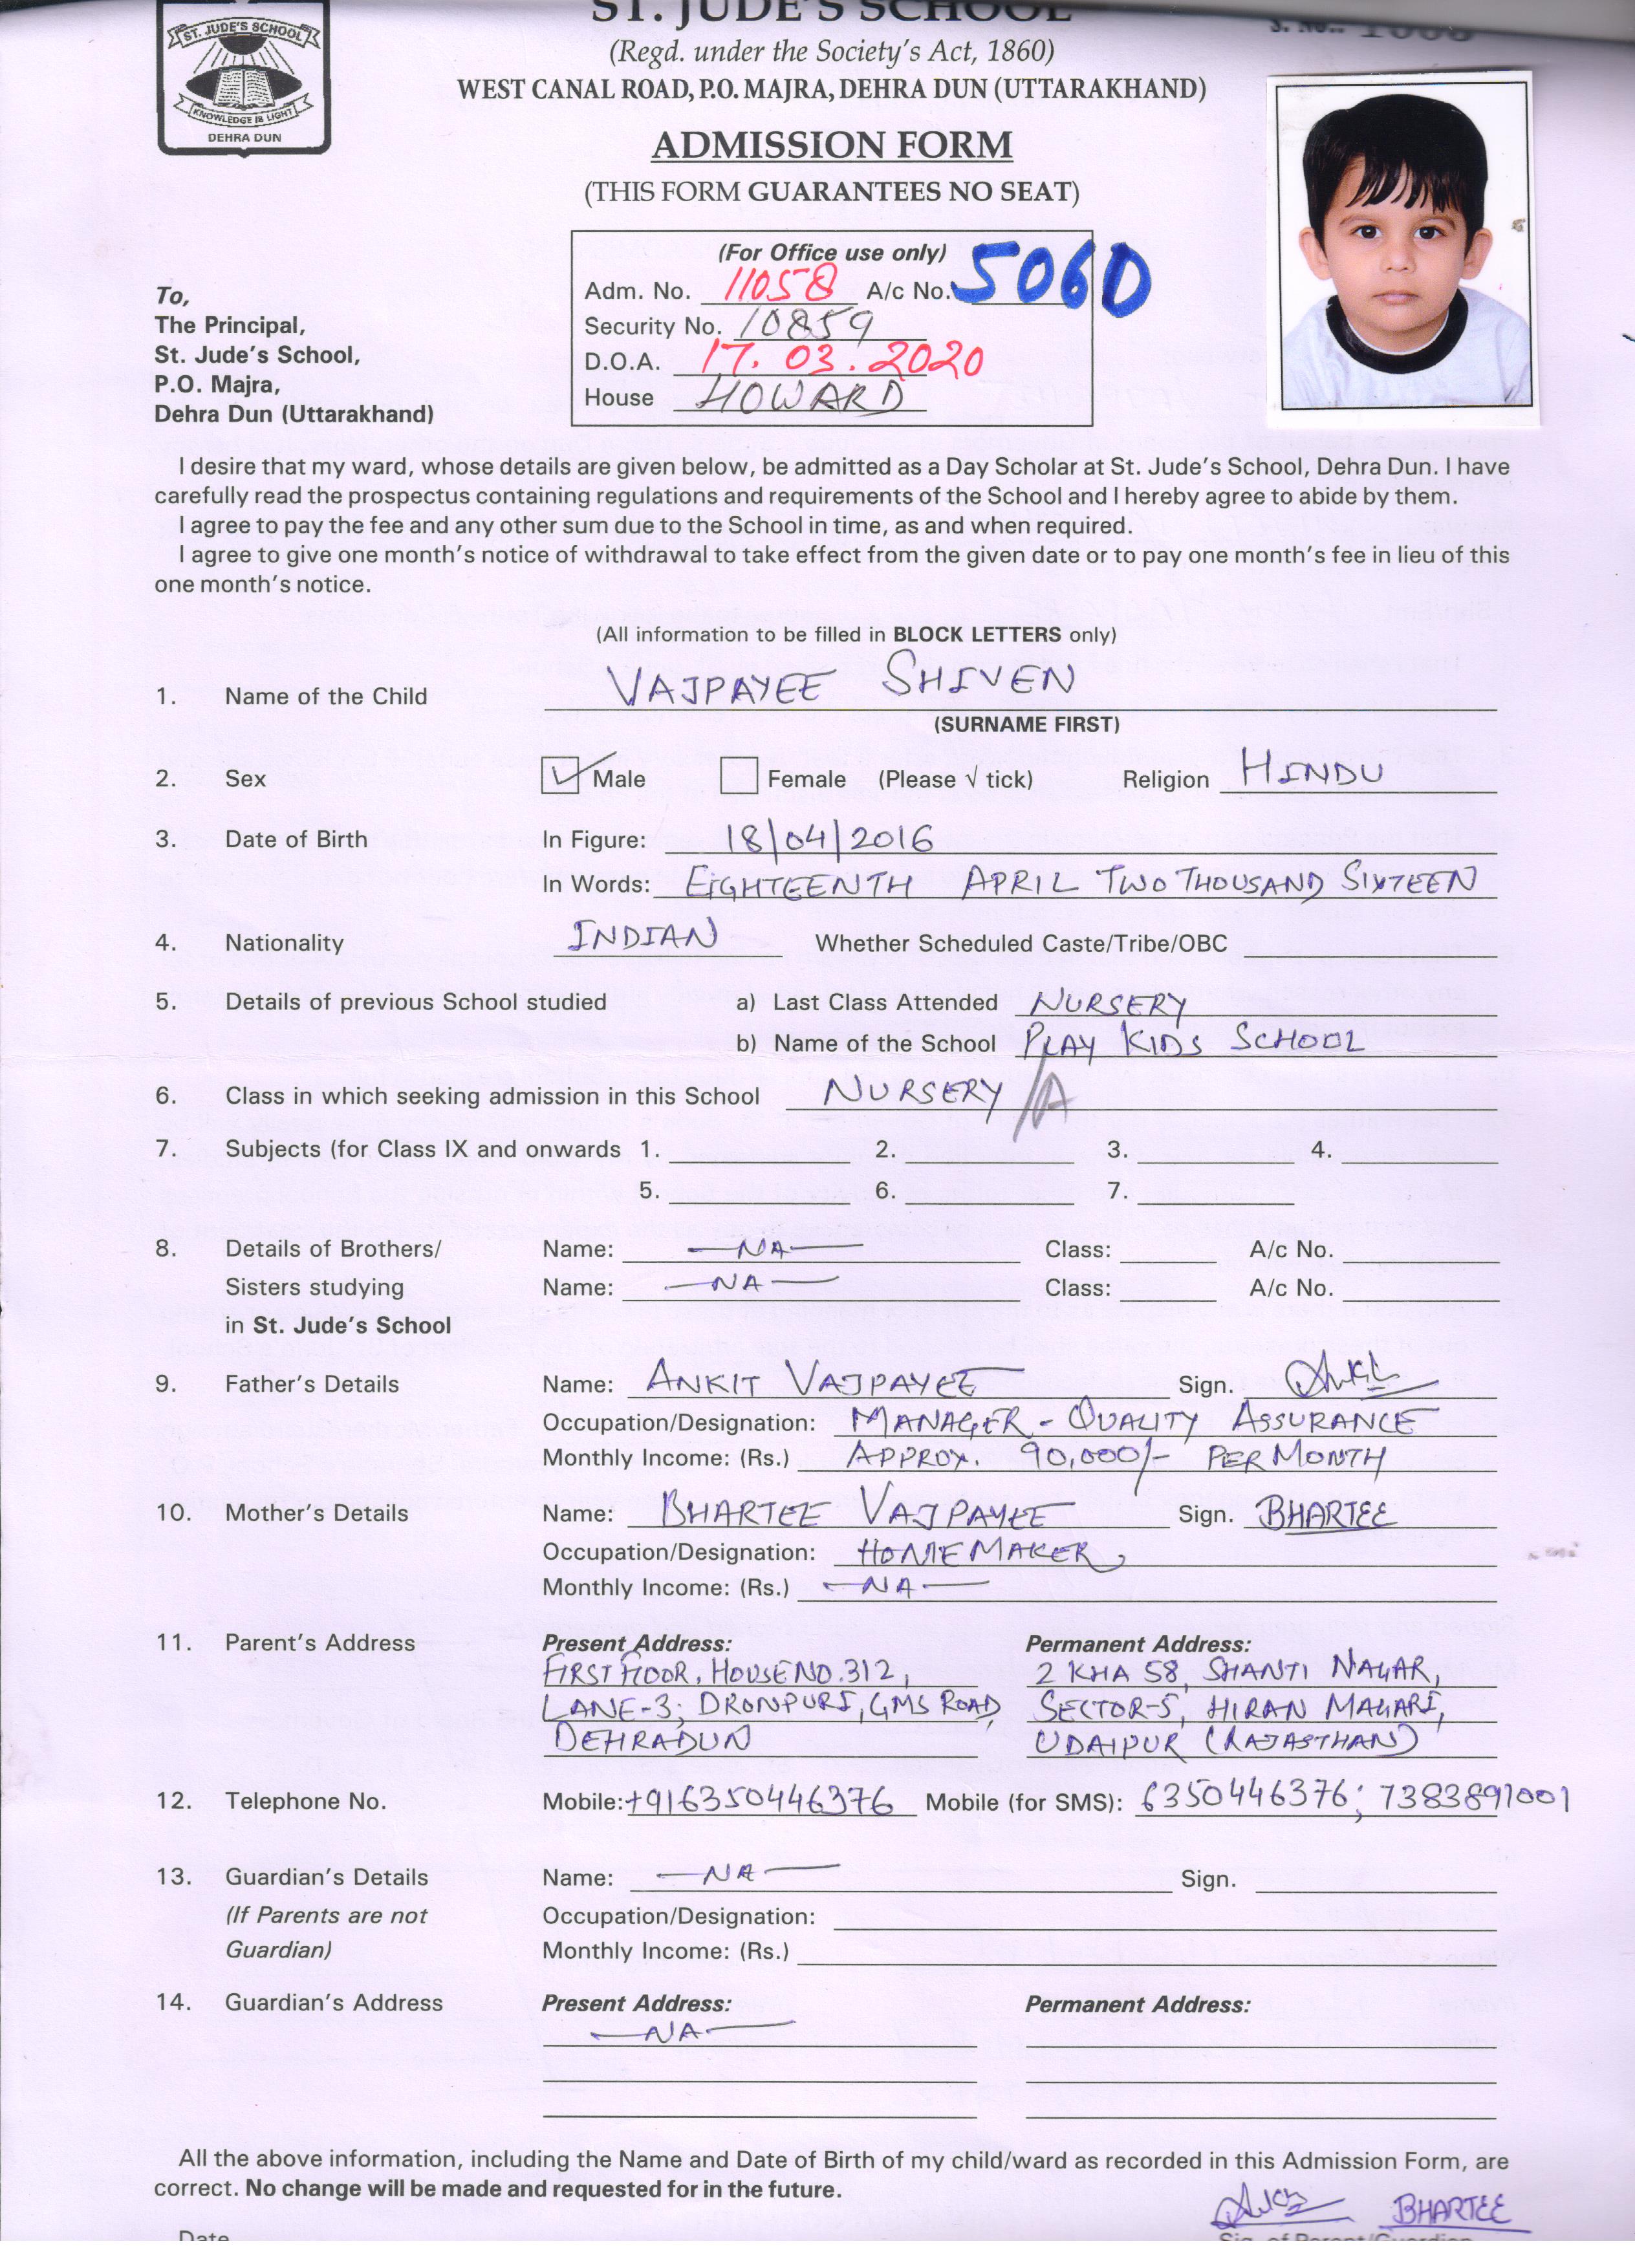 ST. JUDE'S SCHOOL
(Regd. under the Society's Act, 1860)
WEST CANAL ROAD, P.O. MAJRA, DEHRA DUN (UTTARAKHAND)
ST. JUDE'S SCHOOL
KNOWLEDGE IS LIGHT
DEHRA DUN
ADMISSION FORM
(THIS FORM GUARANTEES NO SEAT)
(For Office use only)
Adm. No. 11058 A/c No. 5060
Security No. 10859
D.O.A. 17.03.2020
House HOWARD
To,
The Principal,
St. Jude's School,
P.O. Majra,
Dehra Dun (Uttarakhand)
I desire that my ward, whose details are given below, be admitted as a Day Scholar at St. Jude's School, Dehra Dun. I have
carefully read the prospectus containing regulations and requirements of the School and I hereby agree to abide by them.
I agree to pay the fee and any other sum due to the School in time, as and when required.
I agree to give one month's notice of withdrawal to take effect from the given date or to pay one month's fee in lieu of this
one month's notice.
(All information to be filled in BLOCK LETTERS only)
1. Name of the Child VAJPAYEE SHIVEN
(SURNAME FIRST)
2. Sex Male Female (Please √ tick) Religion HINDU
3. Date of Birth In Figure: 18/04/2016
In Words: EIGHTEENTH APRIL TWO THOUSAND SIXTEEN
4. Nationality INDIAN Whether Scheduled Caste/Tribe/OBC
5. Details of previous School studied a) Last Class Attended NURSERY
b) Name of the School PLAY KIDS SCHOOL
6. Class in which seeking admission in this School NURSERY /A
7. Subjects (for Class IX and onwards 1. 2. 3. 4.
5. 6. 7.
8. Details of Brothers/ Name: —NA— Class: A/c No.
Sisters studying Name: —NA— Class: A/c No.
in St. Jude's School
9. Father's Details Name: ANKIT VAJPAYEE Sign. Ankit
Occupation/Designation: MANAGER - QUALITY ASSURANCE
Monthly Income: (Rs.) APPROX. 90,000/- PER MONTH
10. Mother's Details Name: BHARTEE VAJPAYEE Sign. BHARTEE
Occupation/Designation: HOMEMAKER
Monthly Income: (Rs.) —NA—
11. Parent's Address Present Address: Permanent Address:
FIRST FLOOR, HOUSE NO. 312, 2 KHA 58, SHANTI NAGAR,
LANE-3, DRONPURI, GMS ROAD, SECTOR-5, HIRAN MAGARI,
DEHRADUN UDAIPUR (RAJASTHAN)
12. Telephone No. Mobile: +916350446376 Mobile (for SMS): 6350446376; 7383891001
13. Guardian's Details Name: —NA— Sign.
(If Parents are not Occupation/Designation:
Guardian) Monthly Income: (Rs.)
14. Guardian's Address Present Address: Permanent Address:
—NA—
All the above information, including the Name and Date of Birth of my child/ward as recorded in this Admission Form, are
correct. No change will be made and requested for in the future.
BHARTEE
Date
Sig. of Parent/Guardian